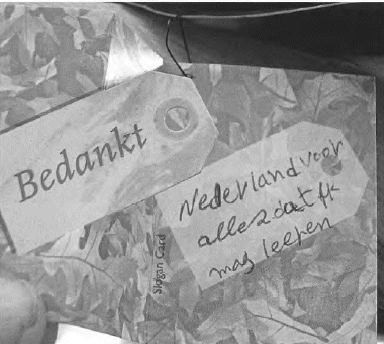 Bedankt
Nederland voor
alles dat ik
mag leeren
Slogan Card